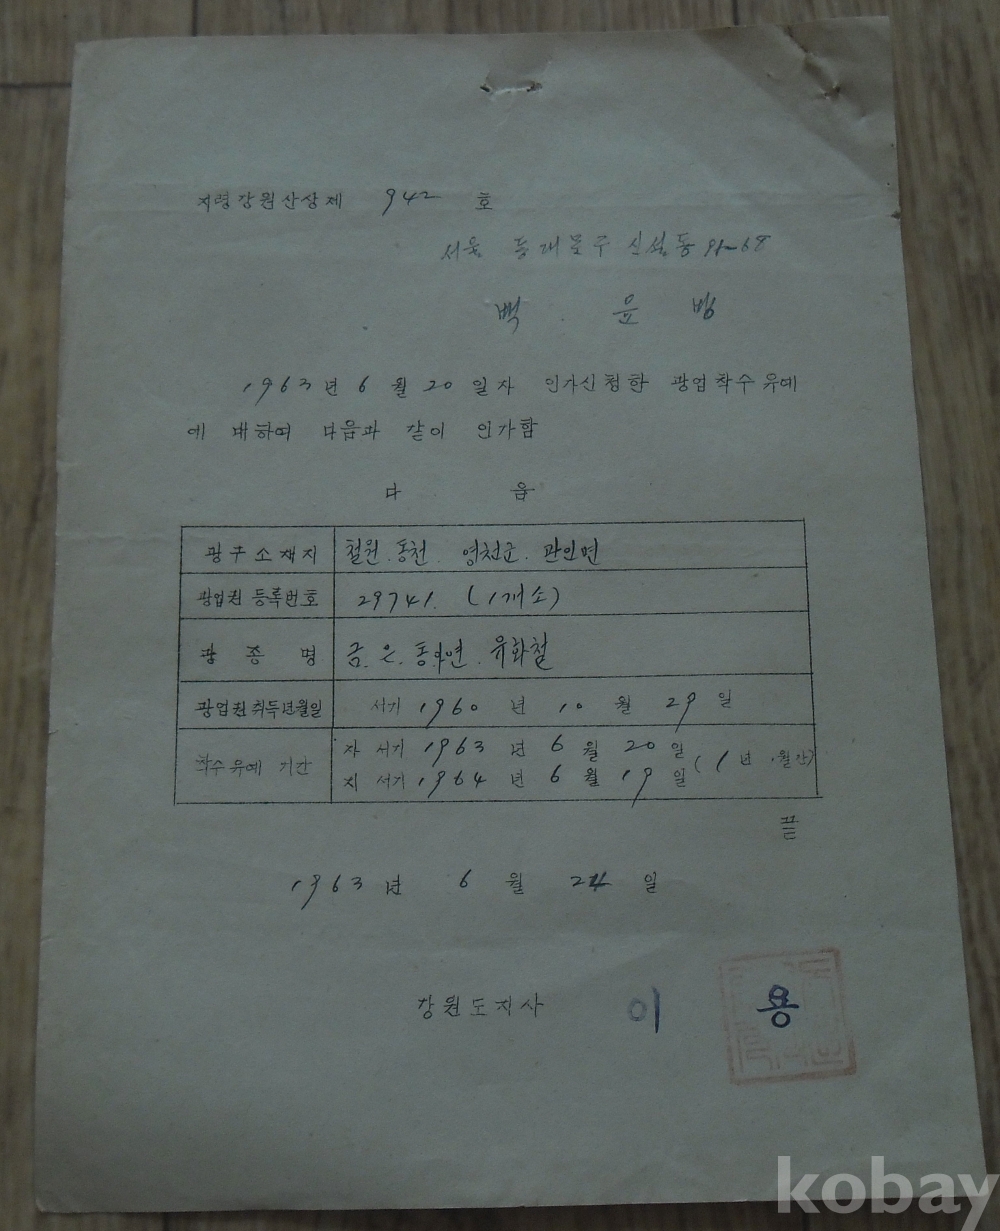 지령강원산상제 942 호
서울 동대문구 신설동 91-68
백 윤 빙
1963년 6월 20일자 인가신청한 광업착수유예
에 대하여 다음과 같이 인가함
다 음
광구소재지 철원.동천. 영천군. 관인면
광업권 등록번호 29741. (1개소)
광종명 금.은.동.연.유화철
광업권 취득년월일 서기 1960년 10월 29일
착수유예 기간 자 서기 1963년 6월 20일
지 서기 1964년 6월 19일 (1년 월간)
끝
1963년 6월 24일
강원도지사 이 용
kobay